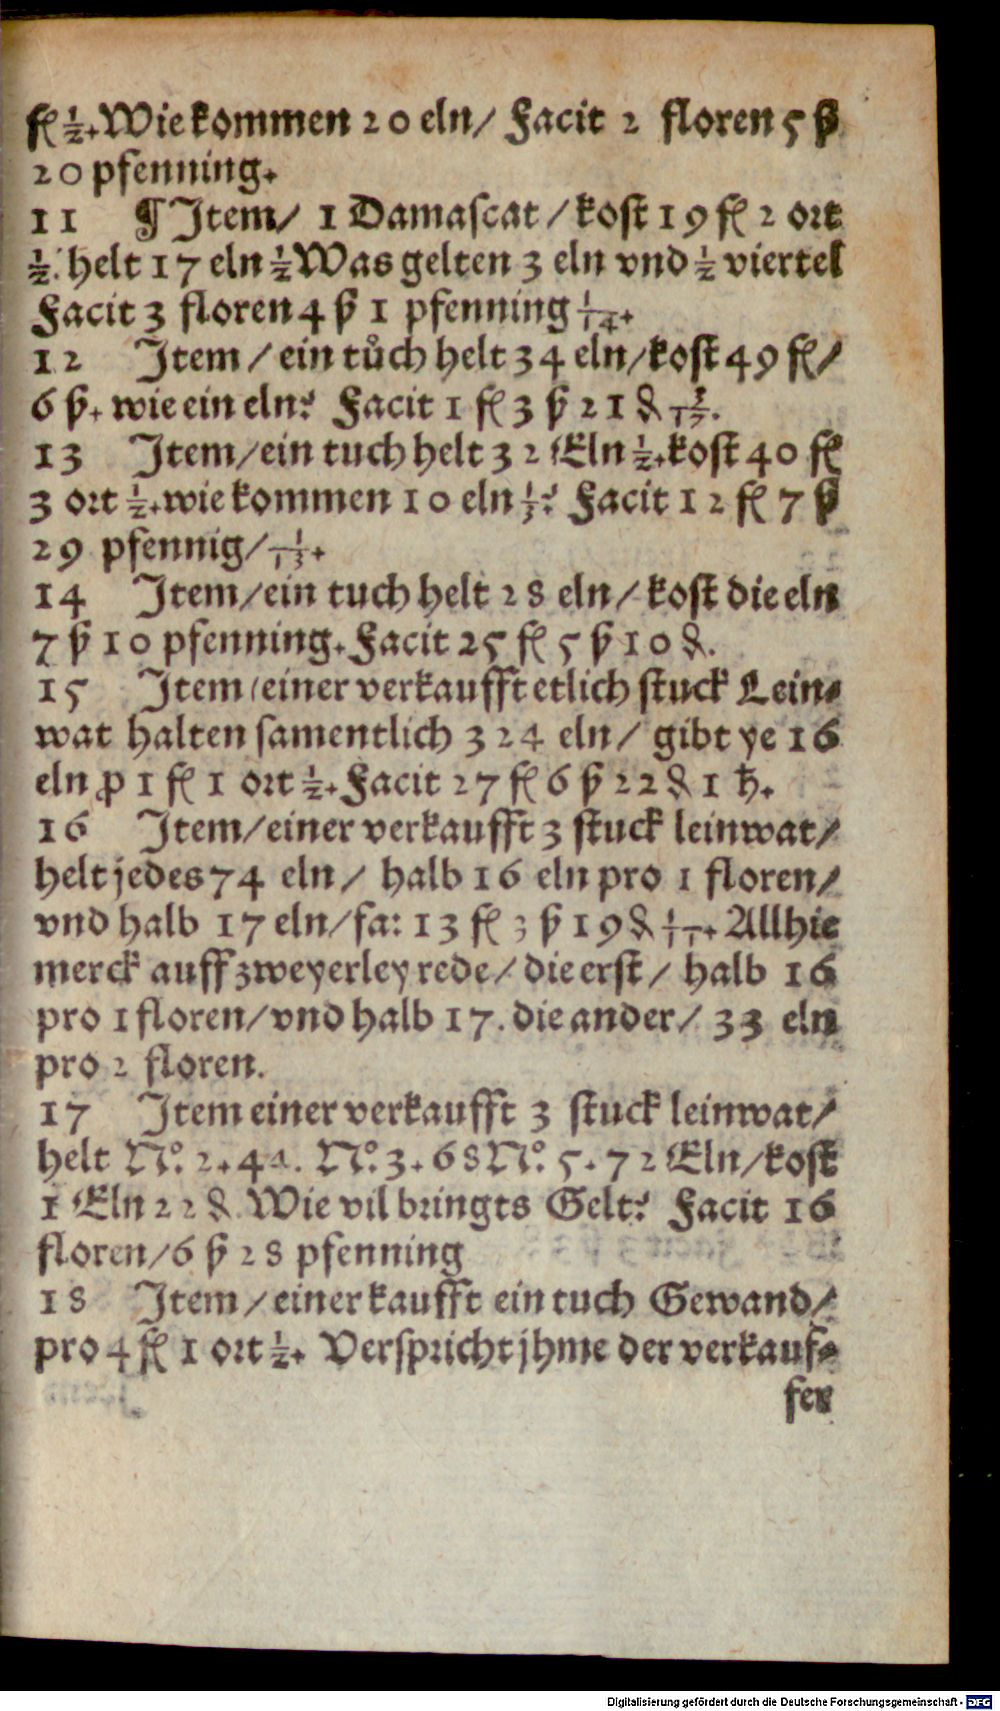 fl ½. Wie kommen 20 eln/ Facit 2 floren 5 ß
20 pfenning.
11 ¶ Item/ 1 Damascat/ kost 19 fl 2 ort
½. helt 17 eln ½ Was gelten 3 eln vnd ½ viertel
Facit 3 floren 4 ß 1 pfenning 1/14.
12 Item/ ein tůch helt 34 eln/ kost 49 fl/
6 ß. wie ein eln? Facit 1 fl 3 ß 21 ₰
13 Item/ ein tuch helt 32 Eln ½. kost 40 fl
3 ort ½. wie kommen 10 eln ⅓? Facit 12 fl 7 ß
29 pfennig/ 1/13.
14 Item/ ein tuch helt 28 eln/ kost die eln
7 ß 10 pfenning. Facit 25 fl 5 ß 10 ₰.
15 Item/ einer verkaufft etlich stuck Lein⸗
wat halten samentlich 324 eln/ gibt ye 16
eln ꝓ 1 fl 1 ort ½. Facit 27 fl 6 ß 22 ₰ 1 ħ.
16 Item/ einer verkaufft 3 stuck leinwat/
helt jedes 74 eln/ halb 16 eln pro 1 floren/
vnd halb 17 eln/ fa: 13 fl 3 ß 19 ₰ 1/11. Allhie
merck auff zweyerley rede/ die erst/ halb 16
pro 1 floren/ vnd halb 17. die ander/ 33 eln
pro 2 floren.
17 Item einer verkaufft 3 stuck leinwat/
helt No. 2. 44. No. 3. 68 No. 5. 72 Eln/ kost
1 Eln 22 ₰. Wie vil bringts Gelt? Facit 16
floren/ 6 ß 28 pfenning
18 Item/ einer kaufft ein tuch Gewand/
pro 4 fl 1 ort ½. Verspricht jhme der verkauf⸗
fer
Digitalisierung gefördert durch die Deutsche Forschungsgemeinschaft - DFG